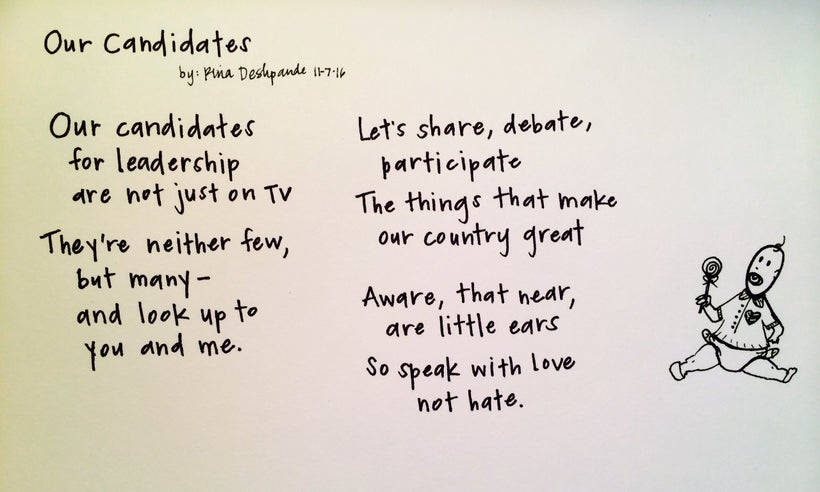 Our Candidates
by: Rina Deshpande 11-7-16
Our candidates
for leadership
are not just on TV
They're neither few,
but many-
and look up to
you and me.
Let's share, debate,
participate
The things that make
our country great
Aware, that near,
are little ears
So speak with love
not hate.